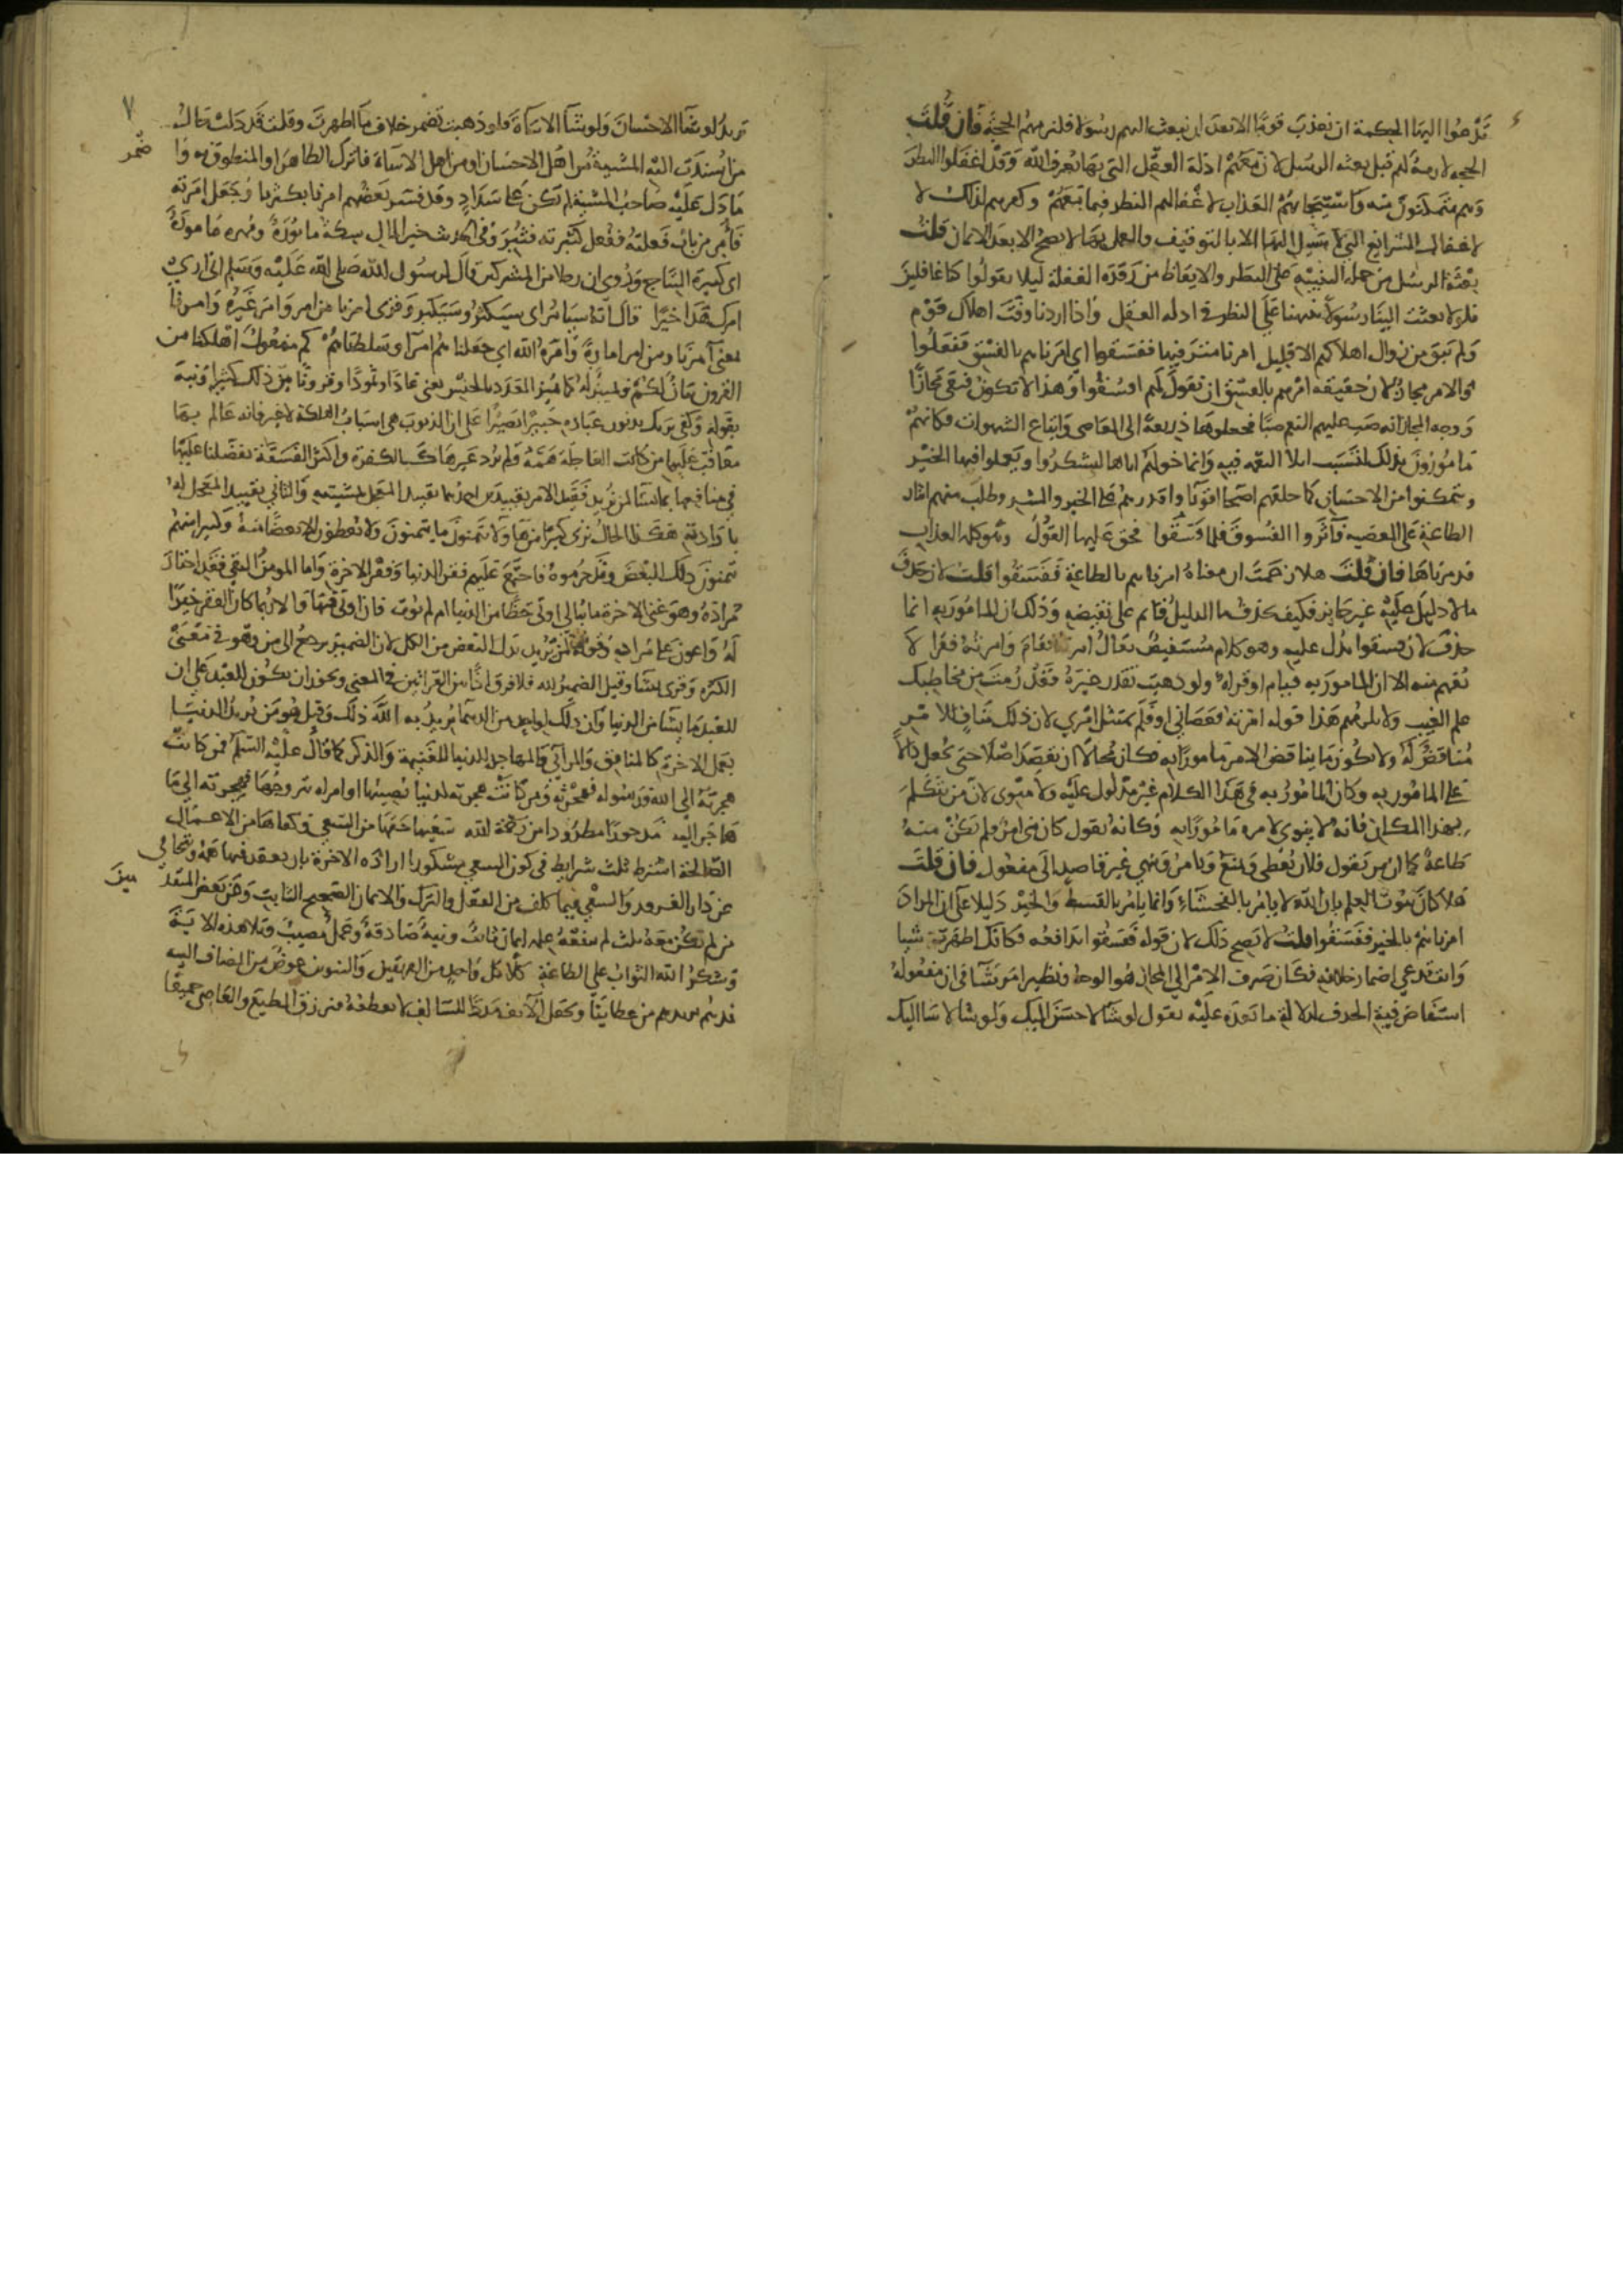 تدعوا اليها الحكمة ان نعذب قوما الا بعد ان نبعث اليهم رسولا فتلزمهم الحجة فان قلت
الحجة لازمة لهم قبل بعثة الرسل لان معهم ادلة العقل التي بها يعرف الله وقد اغفلوا النظر
وهم متمكنون منه واستيجابهم العذاب لاغفالهم النظر فيما معهم وكفرهم لذلك لا
لاغفال الشرائع التي لا سبيل اليها الا بالتوقيف والعمل بها لا يصح الا بعد الايمان قلت
بعثة الرسل من جملة التنبيه على النظر والايقاظ من رقدة الغفلة ليلا يقولوا كنا غافلين
فلولا بعثت الينا رسولا ينبهنا على النظر في ادلة العقل واذا اردنا وقت اهلاك قوم
ولم يبق من زمان اهلاكهم الا قليل امرنا مترفيها ففسقوا اي امرناهم بالفسق ففعلوا
والامر مجاز لان حقيقة امرهم بالفسق ان تقول لهم افسقوا وهذا لا يكون فبقي مجازا
ووجه المجاز انه صب عليهم النعم صبا فجعلوها ذريعة الى المعاصي واتباع الشهوات فكانهم
مامورون بذلك لتسبب ايلاء النعمة فيه وانما خولهم اياها ليشكروا ويعملوا فيها الخير
ويتمكنوا من الاحسان كما خلقهم اصحاء اقوياء واقدرهم على الخير والشر وطلب منهم ايثار
الطاعة على المعصية فآثروا الفسوق فلما فسقوا فحق عليها القول وهو كلمة العذاب
فدمرناها فان قلت هلا زعمت ان معناه امرناهم بالطاعة ففسقوا قلت لان حذف
ما لا دليل عليه غير جايز فكيف يحذف ما الدليل قائم على نقيضه وذلك ان المامور به انما
حذف لان فسقوا يدل عليه وهو كلام مستفيض يقال امرته فقام وامرته فقرا لا
يفهم منه الا ان المامور به قيام او قراءة ولو ذهبت تقدر غيره فقد رمت من مخاطبك
علم الغيب ولا يلزم هذا قولهم امرته فعصاني او فلم يمتثل امري لان ذلك مناف للامر
مناقض له ولا يكون ما يناقض الامر مامورا به فكان محالا ان يقصد اصلا حتى يجعل دالا
على المامور به وكان المامور به في هذا الكلام غير مدلول عليه ولا منوي لان من يتكلم
بهذا الكلام فانه لا ينوي لامره مامورا به وكانه يقول كان مني امر فلم تكن منه
طاعة كما ان من يقول فلان يعطي ويمنع ويامر وينهي غير قاصد الى مفعول فان قلت
هلا كان ثبوت العلم بان الله لا يامر بالفحشاء وانما يامر بالقسط والخير دليلا على ان المراد
امرناهم بالخير ففسقوا قلت لا يصح ذلك لان قوله ففسقوا يدافعه فكانك اظهرت شيا
وانت تدعي اضمار خلافه فكان صرف الامر الى المجاز هو الوجه ونظير امر شاء في ان مفعوله
استفاض فيه الحذف لدلالة ما بعده عليه تقول لو شاء لاحسن اليك ولو شاء لاساء اليك
٧
تريد لو شاء الاحسان ولو شاء الاساءة ولو ذهبت تضمر خلاف ما اظهرت وقلت قد دلت حال
من اسندت اليه المشيئة من اهل الاحسان او من اهل الاساءة فاترك الظاهر او المنطوق به وا
ضمر
ما دل عليه صاحب المشيئة لم تكن على سداد وقد فسر بعضهم امرنا بكثرنا وجعل امرته
فامر من باب فعلته ففعل كثبرته فثبر وفي الحديث خير المال سكة مابورة ومهرة مامورة
اي كثيرة النتاج وروي ان رجلا من المشركين قال لرسول الله صلى الله عليه وسلم اني اري
امرك هذا حقيرا قال انه سيامر اي سيكثر وسيكبر وقرئ امرنا من امر وامر غيره وامرنا
بمعنى آمرنا او من امر امارة وامره الله اي جعلناهم امراء وسلطناهم كم مفعول اهلكنا من
القرون بيان لكم وتمييز له كما يميز العدد بالجنس يعني عادا وثمودا وقرونا بين ذلك كثيرا ونبه
بقوله وكفى بربك بذنوب عباده خبيرا بصيرا على ان الذنوب هي اسباب الهلكة لا غير فانه عالم بها
معاقب عليها من كانت العاجلة همه ولم يرد غيرها كالكفرة واكثر الفسقة تفضلنا عليه
في منافعها بما نشاء لمن نريد فقيد الامر بقيدين احدهما تقييد المعجل بمشيئته والثاني تقييد المعجل له
بارادته هكذا الحال ترى كثيرا من هؤلاء يتمنون ما يتمنون ولا يعطون الا بعضا منه وكثيرا منهم
يتمنون ذلك البعض وقد حرموه فاجتمع عليهم فقر الدنيا وفقر الاخرة واما المومن التقي فقد اختار
مراده وهو غنى الاخرة فما يبالي اوتي حظا من الدنيا ام لم يوت فان اوتي فبها والا فربما كان الفقر خيرا
له واعون على مراده وقوله لمن نريد بدل البعض من الكل لان الضمير يرجع الى من وهو في معنى
الكثرة وقرئ يشاء وقيل الضمير لله فلا فرق اذا بين القراءتين في المعنى ويجوز ان يكون للعبد على ان
للعبد ما يشاء من الدنيا وان ذلك لواحد من الدهماء يريد به الله ذلك وقيل هو من يريد الدنيا
بعمل الاخرة كالمنافق والمرائي والمهاجر للدنيا للغنيمة والذكر كما قال عليه السلم فمن كانت
هجرته الى الله ورسوله فهجرته ومن كانت هجرته لدنيا يصيبها او امراه يتزوجها فهجرته الى ما
هاجر اليه مدحورا مطرودا من رحمة الله سعيها حقها من السعي وكفاها من الاعمال
الصالحة اشترط ثلث شرايط في كون السعي مشكورا ارادة الاخرة بان يعقد فيها همه ويتجافى
عن دار الغرور والسعي فيما كلف من الفعل والترك والايمان الصحيح الثابت وعن بعض المتقد
مين
من لم تكن معه ثلث لم ينفعه عمله ايمان ثابت ونية صادقة وعمل مصيب وتلا هذه الاية
وشكر الله الثواب على الطاعة كلا كل واحد من الفريقين والتنوين عوض من المضاف اليه
نمد هم نزيدهم من عطايانا ونجعل الآنف مددا للسالف لا نقطعه فنرزق المطيع والعاصي جميعا